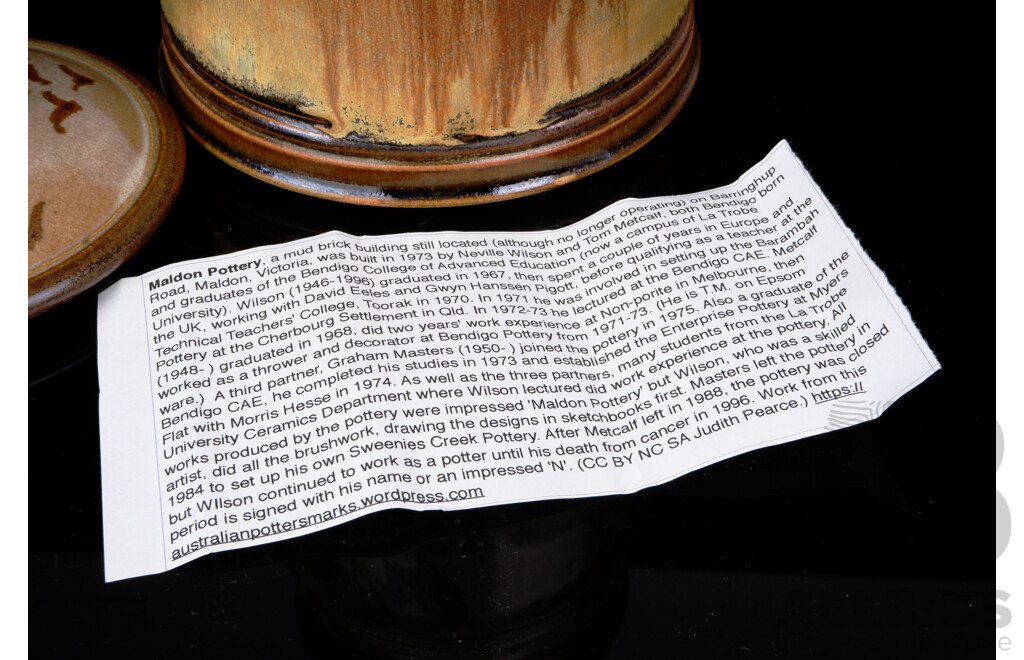 Maldon Pottery, a mud brick building still located (although no longer operating) on Barringhup
Road, Maldon, Victoria, was built in 1973 by Neville Wilson and Tom Metcalf, both Bendigo born
and graduates of the Bendigo College of Advanced Education (now a campus of La Trobe
University). Wilson (1946-1996) graduated in 1967, then spent a couple of years in Europe and
the UK, working with David Eeles and Gwyn Hanssen Pigott, before qualifying as a teacher at the
Technical Teachers' College, Toorak in 1970. In 1971 he was involved in setting up the Barambah
Pottery at the Cherbourg Settlement in Qld. In 1972-73 he lectured at the Bendigo CAE. Metcalf
(1948- ) graduated in 1968, did two years' work experience at Non-porite in Melbourne, then
worked as a thrower and decorator at Bendigo Pottery from 1971-73. (He is T.M. on Epsom
ware.) A third partner, Graham Masters (1950- ) joined the pottery in 1975. Also a graduate of the
Bendigo CAE, he completed his studies in 1973 and established the Enterprise Pottery at Myers
Flat with Morris Hesse in 1974. As well as the three partners, many students from the La Trobe
University Ceramics Department where Wilson lectured did work experience at the pottery. All
works produced by the pottery were impressed 'Maldon Pottery' but Wilson, who was a skilled
artist, did all the brushwork, drawing the designs in sketchbooks first. Masters left the pottery in
1984 to set up his own Sweenies Creek Pottery. After Metcalf left in 1988, the pottery was closed
but WIlson continued to work as a potter until his death from cancer in 1996. Work from this
period is signed with his name or an impressed 'N'. (CC BY NC SA Judith Pearce.) https://
australianpottersmarks.wordpress.com